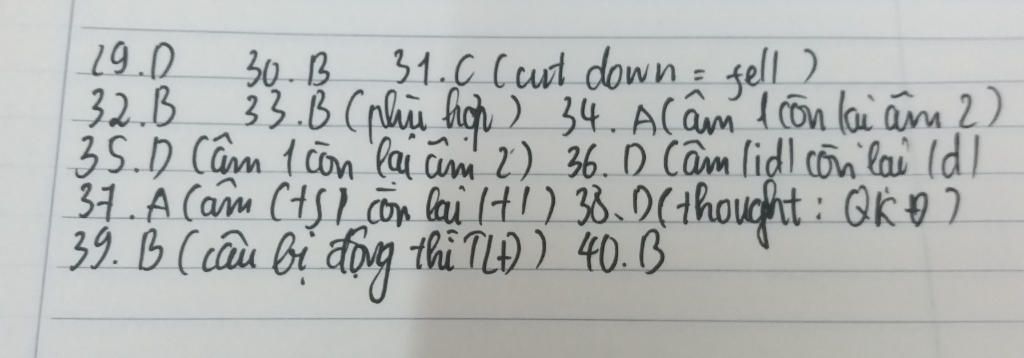 29.D 30.B 31.C (cut down = fell)
32.B 33.B (phù hợp) 34. A (âm 1 còn lại âm 2)
35.D (âm 1 còn lại âm 2) 36. D (âm /id/ còn lại /d/
37. A (âm (tʃ/ còn lại /t/) 38. D (thought: QKĐ)
39. B (câu bị động thì TLĐ) 40. B